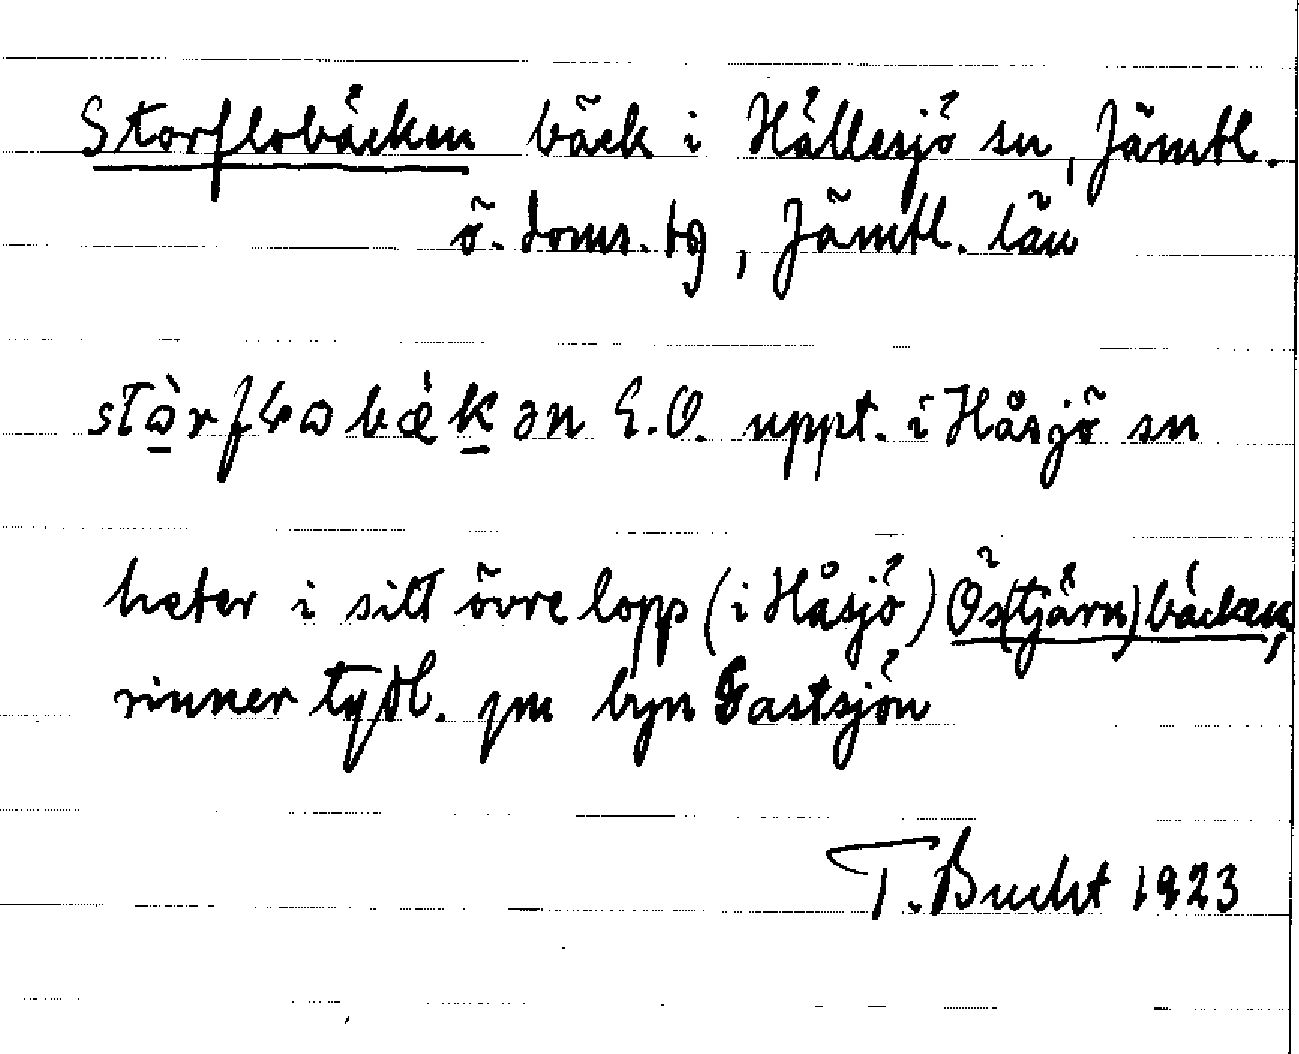 Storflobäcken bäck i Hällesjö sn, Jämtl.
ö. doms. tg, Jämtl. län
stɷ̀rfɬɷbæ̀kən E.O. uppt. i Håsjö sn
heter i sitt övre lopp (i Håsjö) Ös(tjärn)bäcken,
rinner tydl. gm byn Gastsjön
T. Bucht 1923